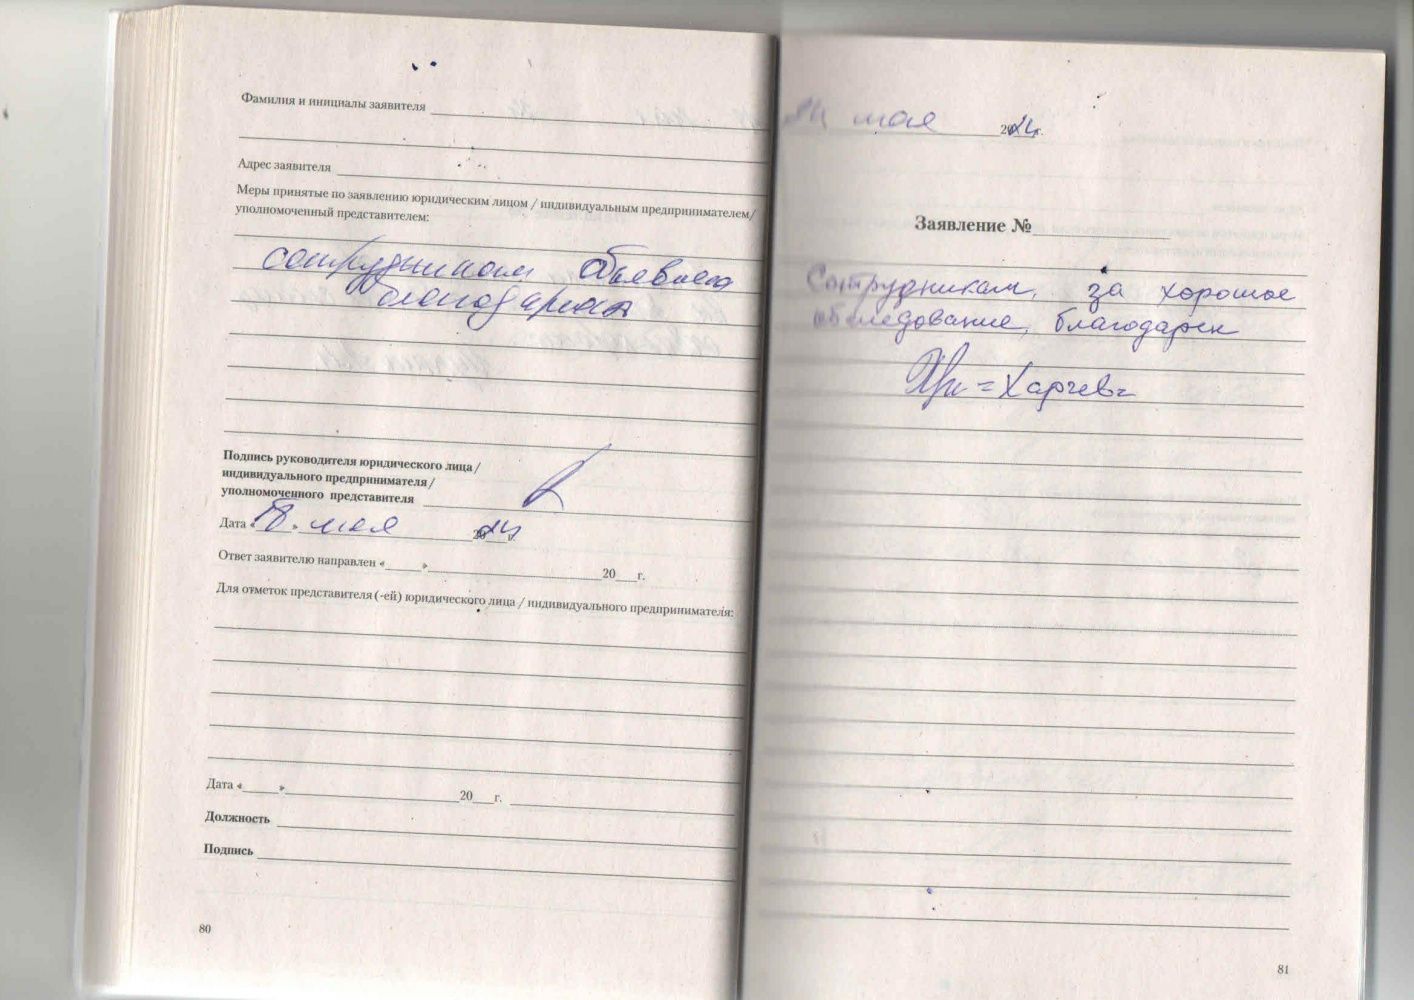 Фамилия и инициалы заявителя
Адрес заявителя
Меры принятые по заявлению юридическим лицом / индивидуальным предпринимателем/
уполномоченный представителем:
сотрудникам объявлена
благодарность
Подпись руководителя юридического лица /
индивидуального предпринимателя /
уполномоченного представителя
Дата «18» мая 2024г.
Ответ заявителю направлен «    »    20    г.
Для отметок представителя (-ей) юридического лица / индивидуального предпринимателя:
Дата «    »    20    г.
Должность
Подпись
80
мая 2024г.
Заявление №
Сотрудникам, за хорошое
обследование, благодарен
= Харчев =
81